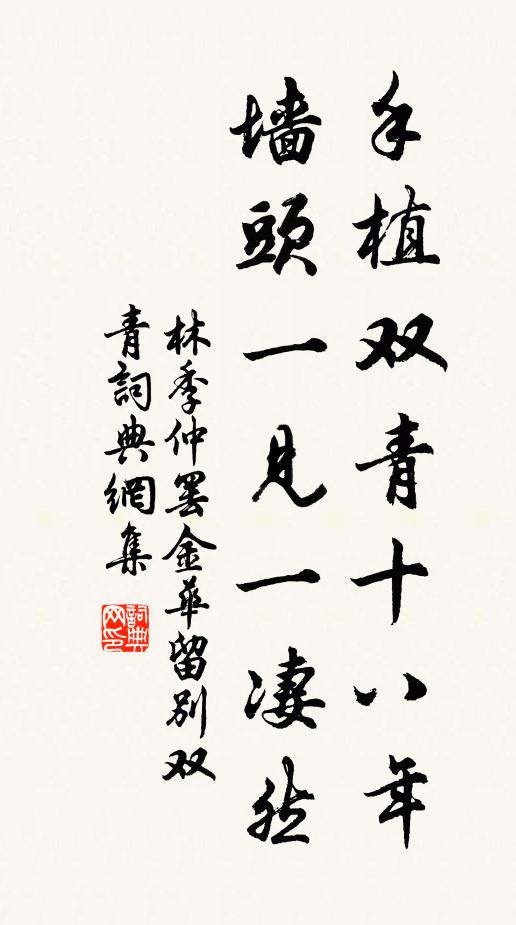 手植双青十八年
墙頭一見一凄然
林季仲罢金華留别双
青詞典網集
詞典
网印